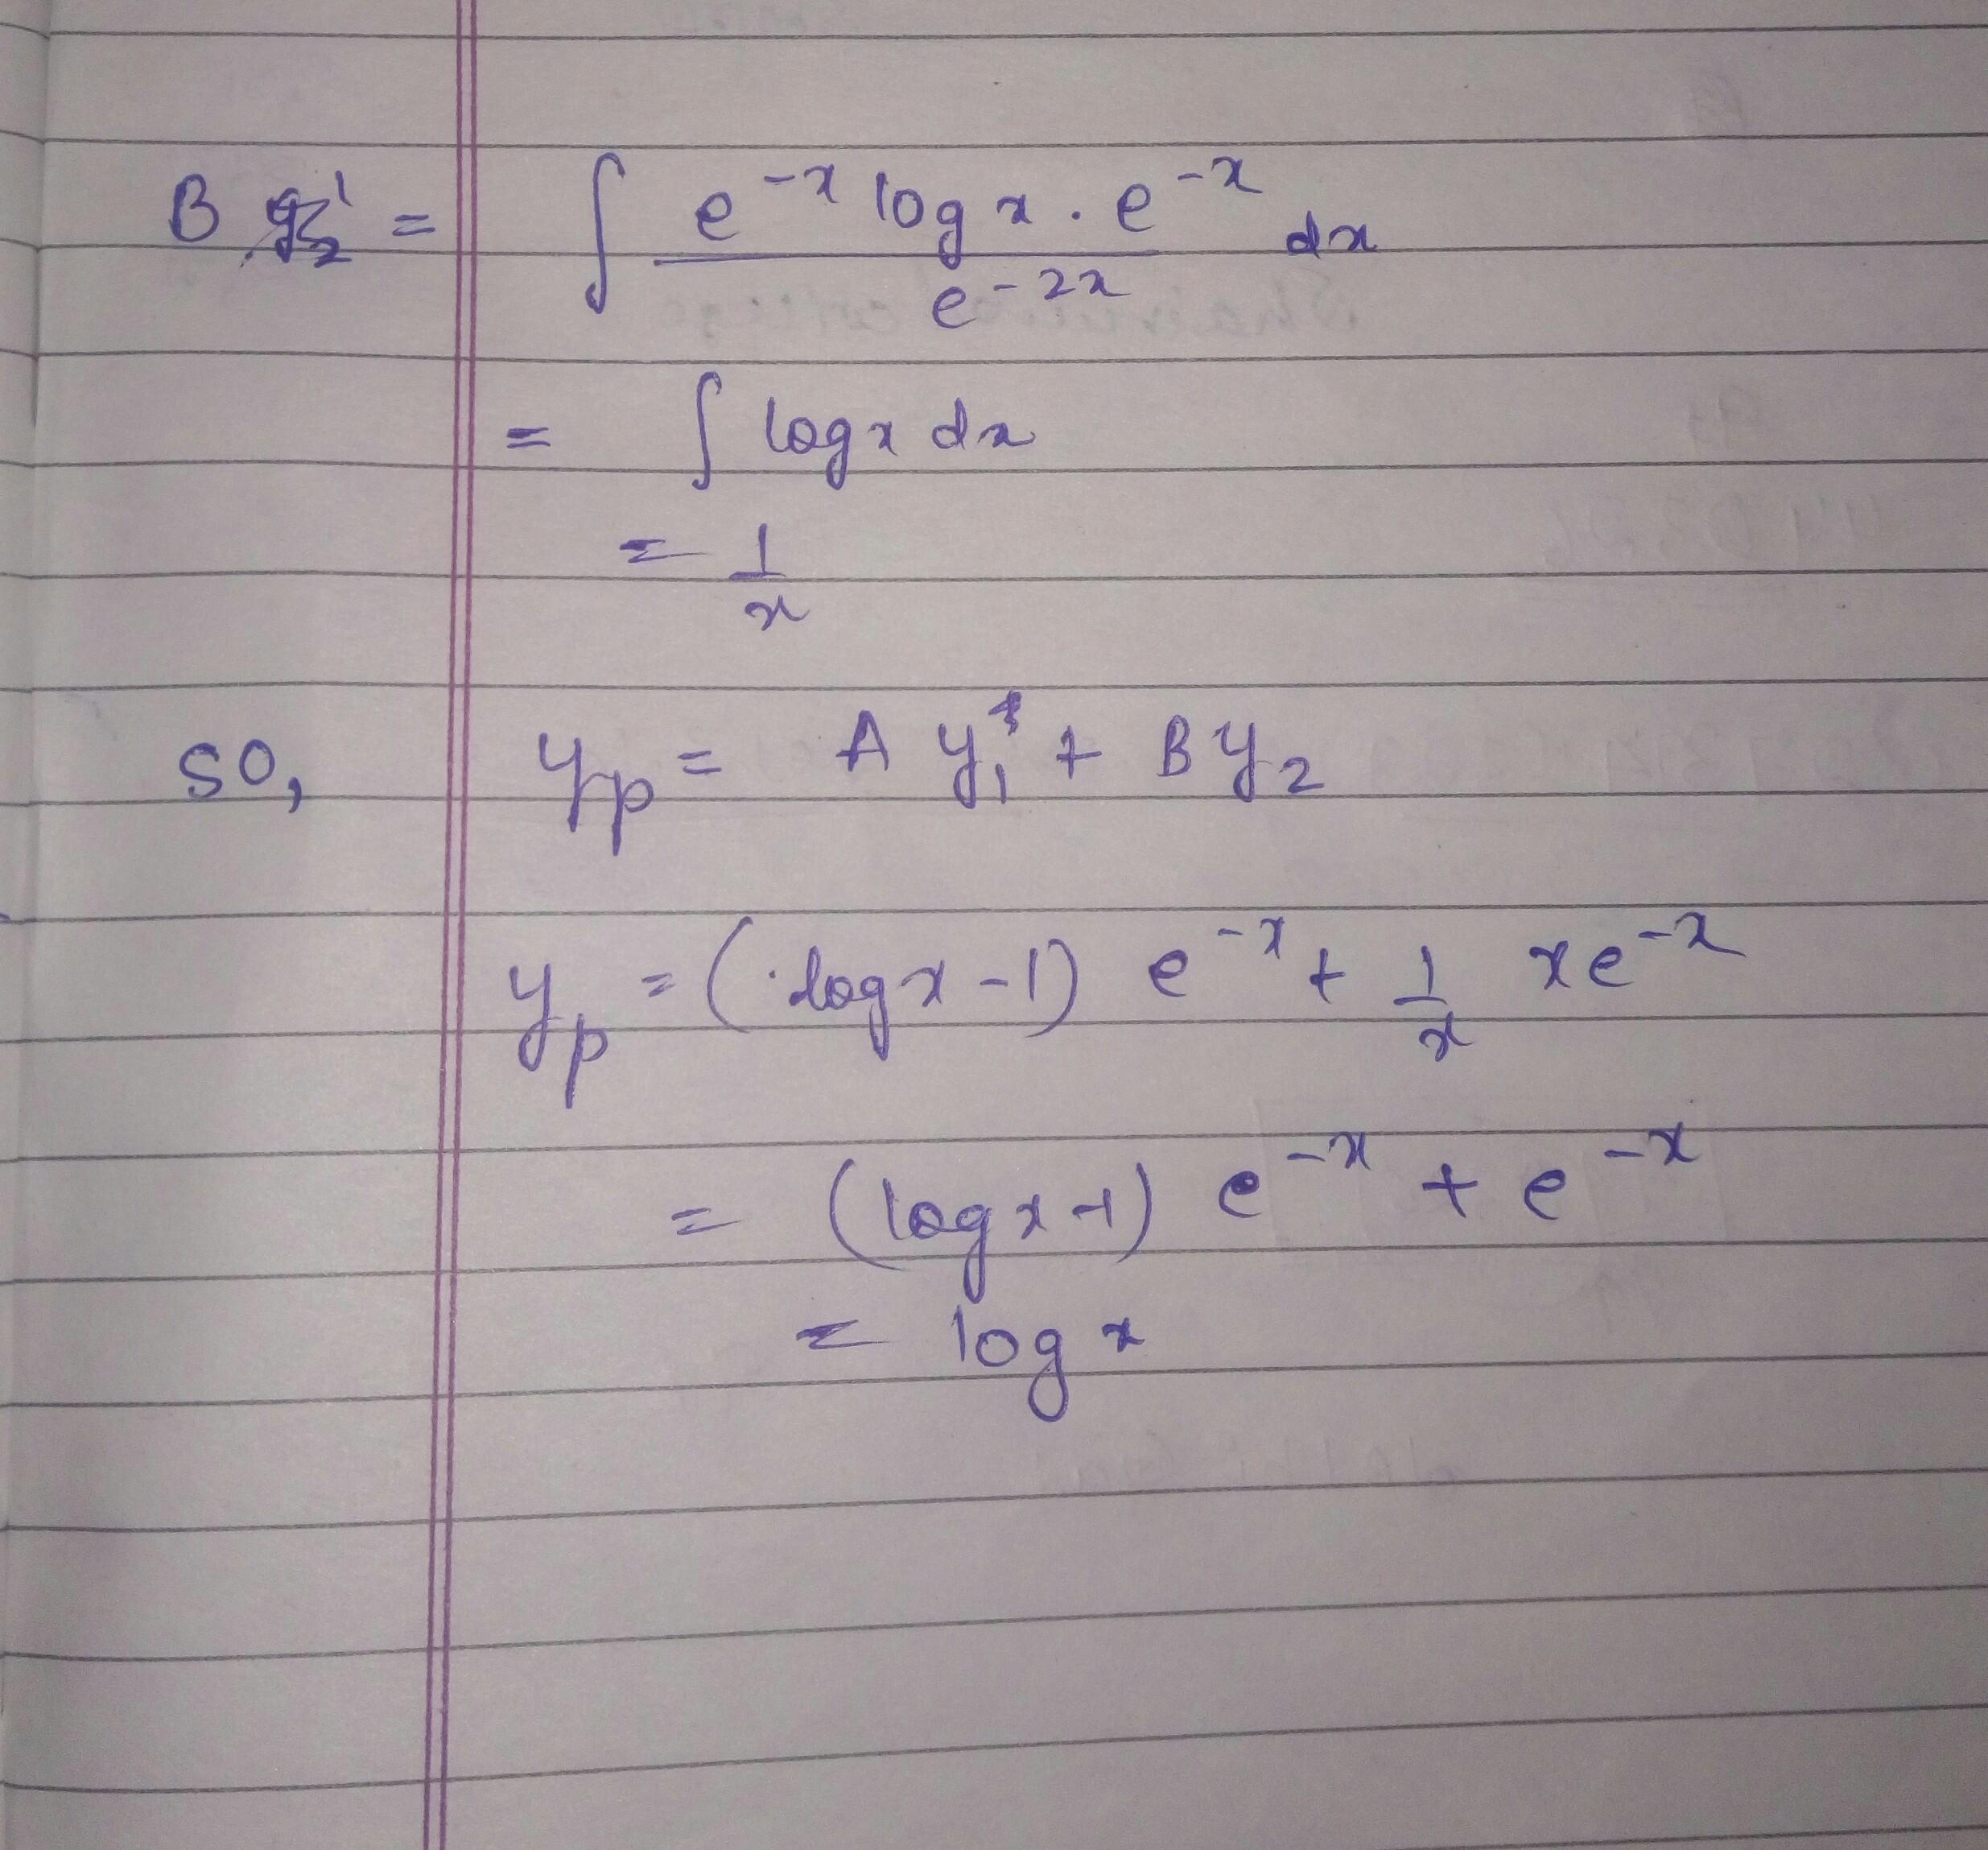 B = ∫ e^{-x} log x . e^{-x} / e^{-2x} dx
= ∫ log x dx
= 1/x
so, y_p = A y_1 + B y_2
y_p = (log x - 1) e^{-x} + 1/x xe^{-x}
= (log x - 1) e^{-x} + e^{-x}
= log x